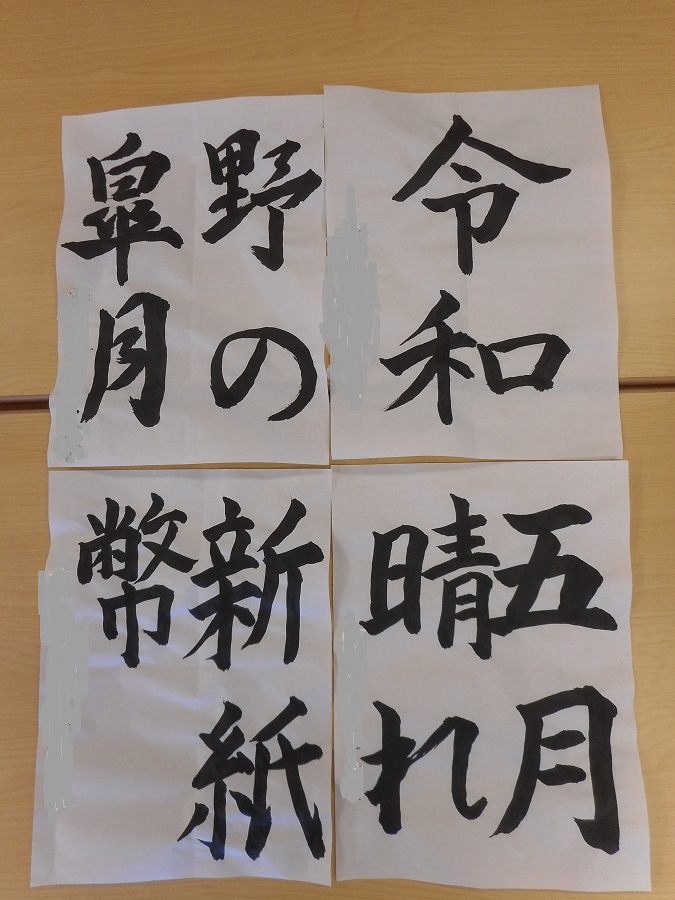 令和
野の
皐月
五月
晴れ
新紙
幣